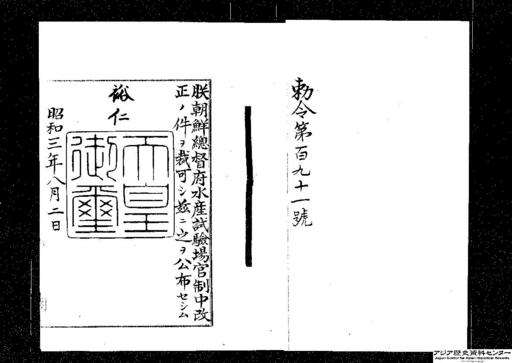 勅令第百九十一號
朕朝鮮總督府水產試驗場官制中改
正ノ件ヲ裁可シ茲ニ之ヲ公布セシム
裕仁
天皇
御璽
昭和三年八月二日
アジア歴史資料センター
Japan Center for Asian Historical Records